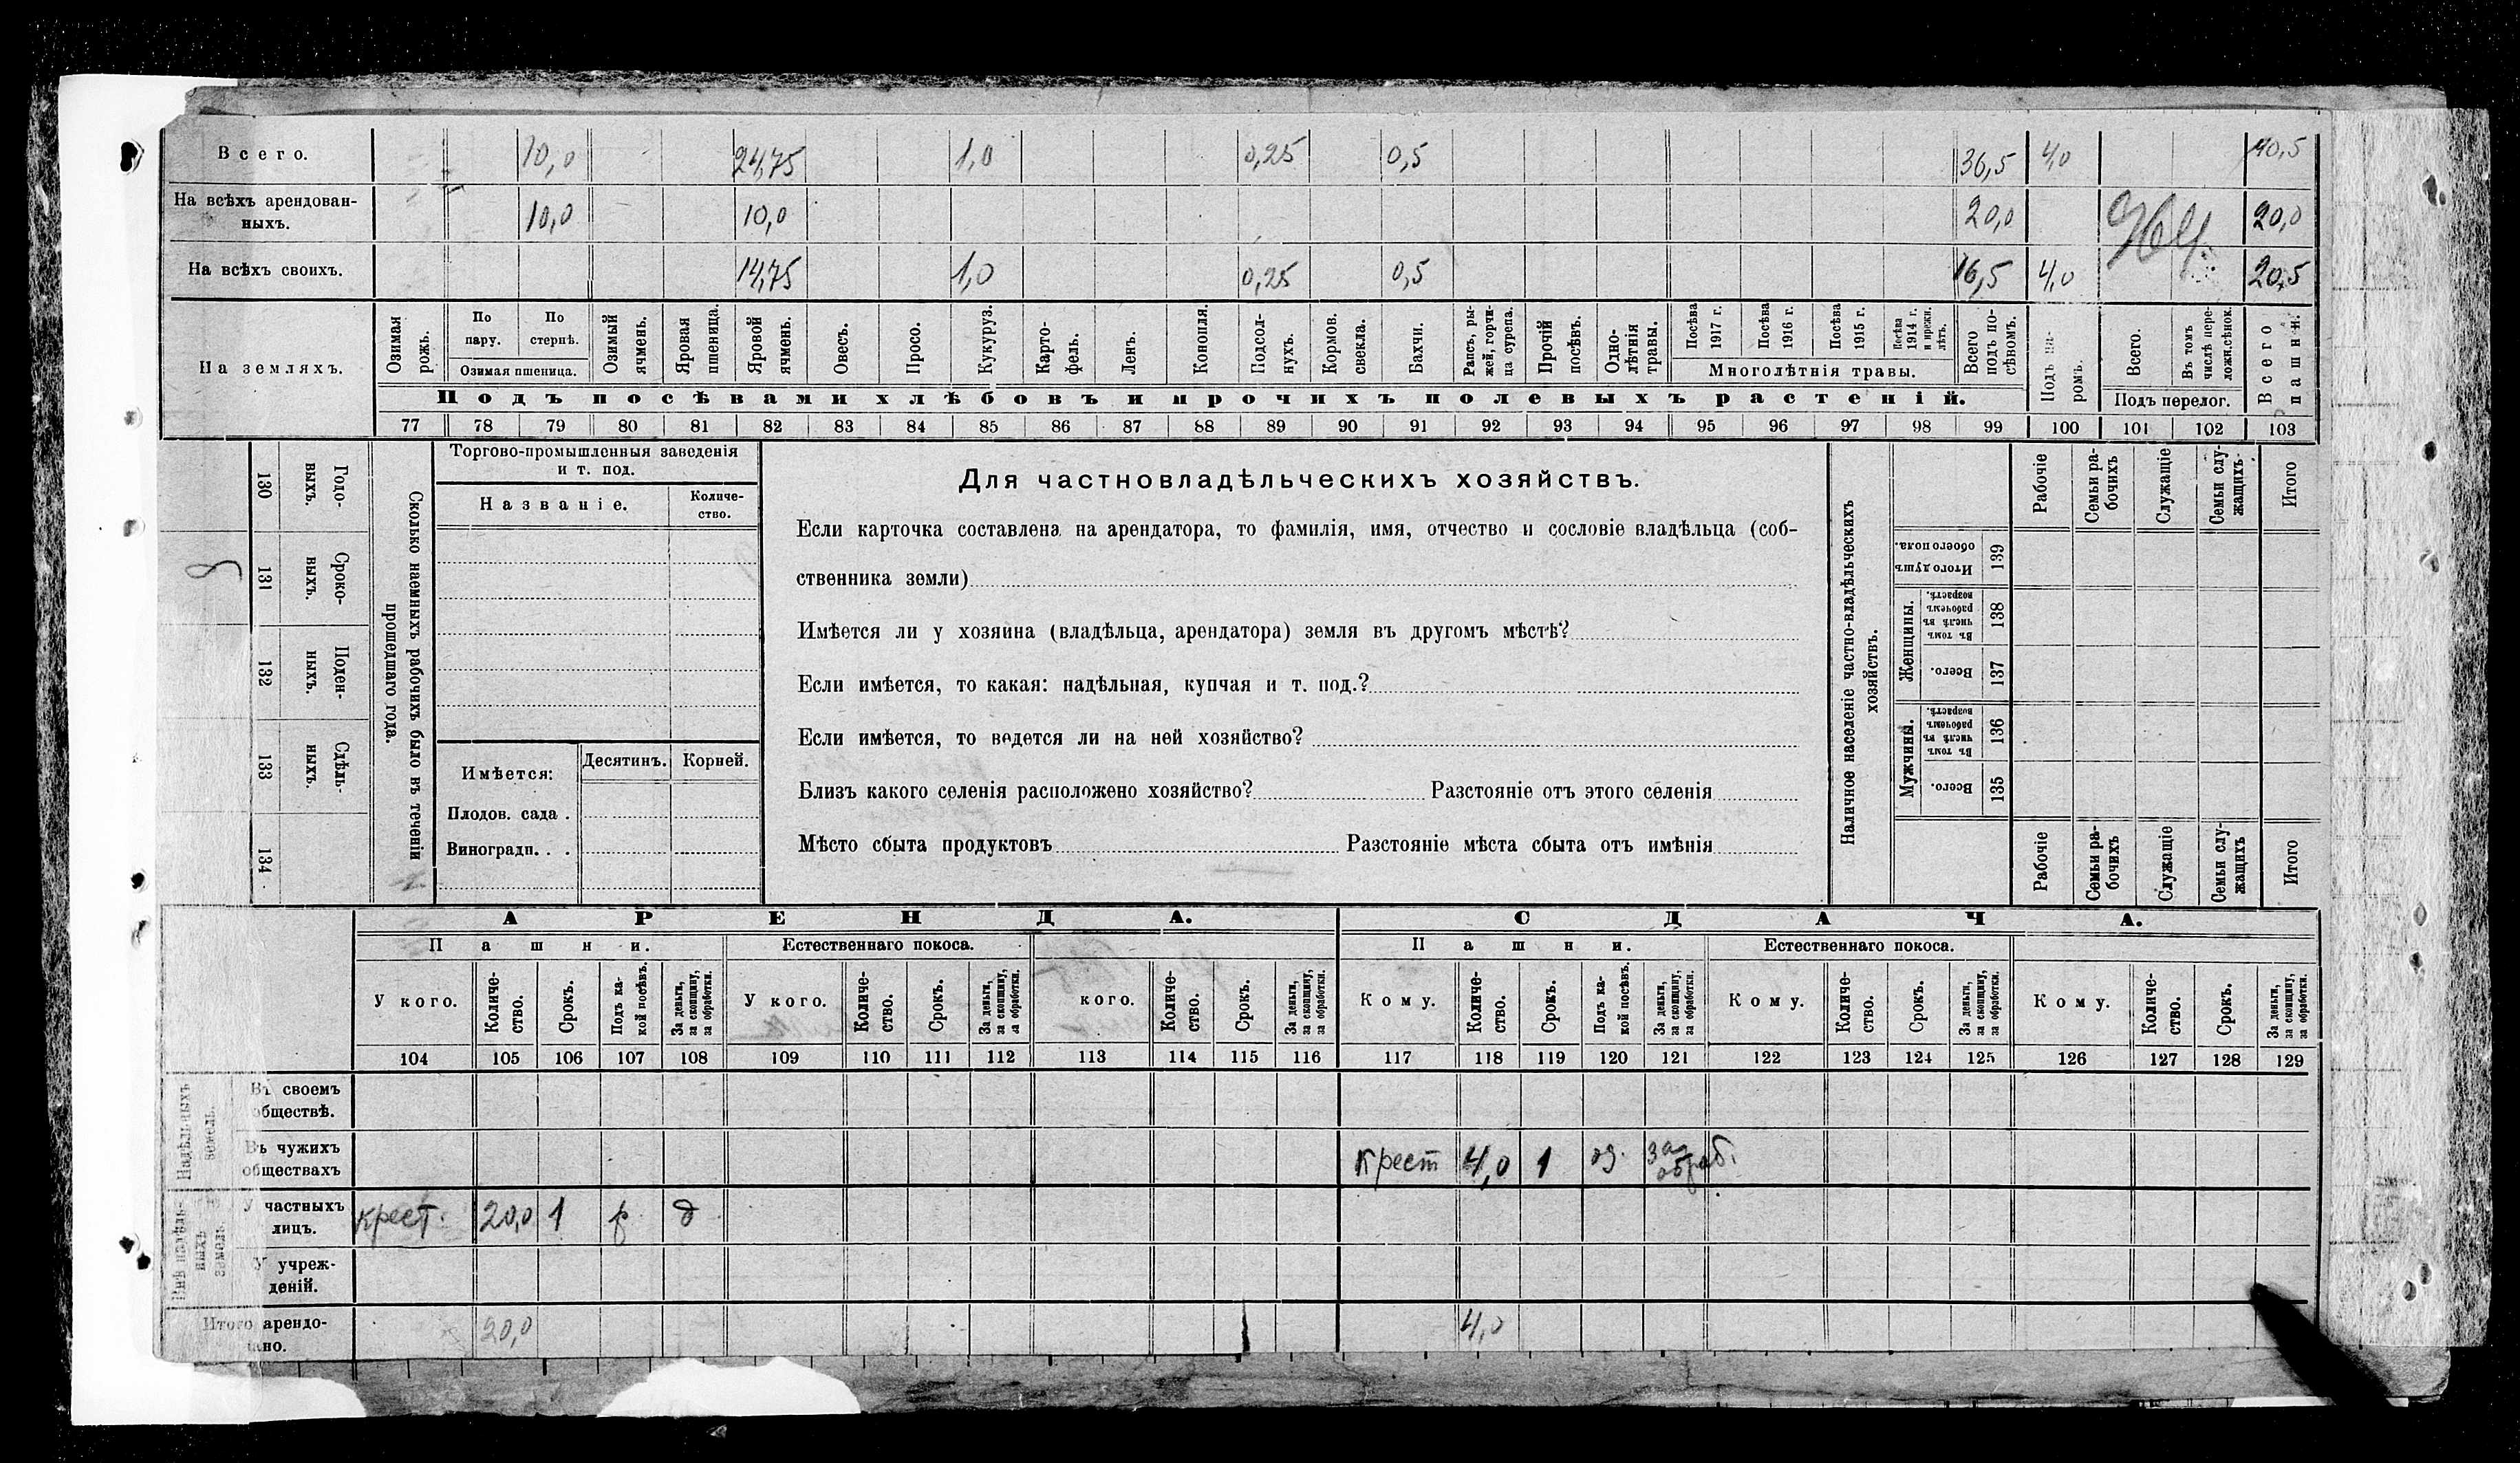 Всего. 10,0 24,75 1,0 0,25 0,5 36,5 4,0 40,5
На всѣхъ арендован-
ныхъ. 10,0 10,0 20,0 20,0
На всѣхъ своихъ. 14,75 1,0 0,25 0,5 16,5 4,0 20,5
На земляхъ.
Озимая рожь.
По пару.
По стернѣ.
Озимая пшеница.
Озимый ячмень.
Яровая пшеница.
Яровой ячмень.
Овесъ.
Просо.
Кукуруз.
Карто-
фель.
Ленъ.
Конопля.
Подсол-
нухъ.
Кормов. свекла.
Бахчи.
Рапсъ, ры-
жей, горчи-
ца сурепа.
Прочій посѣвъ.
Одно-
лѣтнія травы.
Посѣва 1917 г.
Посѣва 1916 г.
Посѣва 1915 г.
Посѣва 1914 г. и прежн. лѣтъ.
Многолѣтнія травы.
Всего подъ по-
сѣвомъ.
Подъ па-
ромъ.
Всего.
Въ томъ числѣ пере-
ложн. сѣнок.
Подъ перелог.
Всего пашни.
Подъ посѣвами хлѣбовъ и прочихъ полевыхъ растеній.
77 78 79 80 81 82 83 84 85 86 87 88 89 90 91 92 93 94 95 96 97 98 99 100 101 102 103
130 Годо-
выхъ.
131 Сроко-
выхъ.
132 Поден-
ныхъ.
133 Сдѣль-
ныхъ.
134
Сколько наемныхъ рабочихъ было въ теченіи
прошедшаго года.
Торгово-промышленныя заведенія
и т. под.
Названіе.
Количе-
ство.
Имѣется: Десятинъ. Корней.
Плодов. сада .
Виноградн. . .
Для частновладѣльческихъ хозяйствъ.
Если карточка составлена на арендатора, то фамилія, имя, отчество и сословіе владѣльца (соб-
ственника земли)
Имѣется ли у хозяина (владѣльца, арендатора) земля въ другомъ мѣстѣ?
Если имѣется, то какая: надѣльная, купчая и т. под.?
Если имѣется, то ведется ли на ней хозяйство?
Близъ какого селенія расположено хозяйство? Разстояніе отъ этого селенія
Мѣсто сбыта продуктовъ Разстояніе мѣста сбыта отъ имѣнія
Наличное населеніе частно-владѣльческихъ
хозяйствъ.
Рабочіе
Семьи ра-
бочихъ
Служащіе
Семьи слу-
жащихъ
Итого
Итого душъ обоего пола. 139
Женщины.
Въ томъ числѣ въ рабочемъ возрастѣ. 138
Всего. 137
Мужчины.
Въ томъ числѣ въ рабочемъ возрастѣ. 136
Всего. 135
Рабочіе
Семьи ра-
бочихъ
Служащіе
Семьи слу-
жащихъ
Итого
АРЕНДА. СДАЧА.
Пашни. Естественнаго покоса. Пашни. Естественнаго покоса.
У кого.
Количе-
ство.
Срокъ.
Подъ ка-
кой посѣвъ.
За деньги, за скопщину, за обработки.
У кого.
Количе-
ство.
Срокъ.
За деньги, за скопщину, за обработки.
кого.
Количе-
ство.
Срокъ.
За деньги, за скопщину, за обработки.
Кому.
Количе-
ство.
Срокъ.
Подъ ка-
кой посѣвъ.
За деньги, за скопщину, за обработки.
Кому.
Количе-
ство.
Срокъ.
За деньги, за скопщину, за обработки.
Кому.
Количе-
ство.
Срокъ.
За деньги, за скопщину, за обработки.
104 105 106 107 108 109 110 111 112 113 114 115 116 117 118 119 120 121 122 123 124 125 126 127 128 129
Надѣльныхъ
земель.
Въ своемъ
обществѣ.
Въ чужихъ
обществахъ Крест 4,0 1 оз. за обраб.
Внѣ надѣль-
ныхъ земель.
У частныхъ
лицъ. Крест. 20,0 1 р д
У учреж-
деній.
Итого арендо-
вано. 20,0 4,0